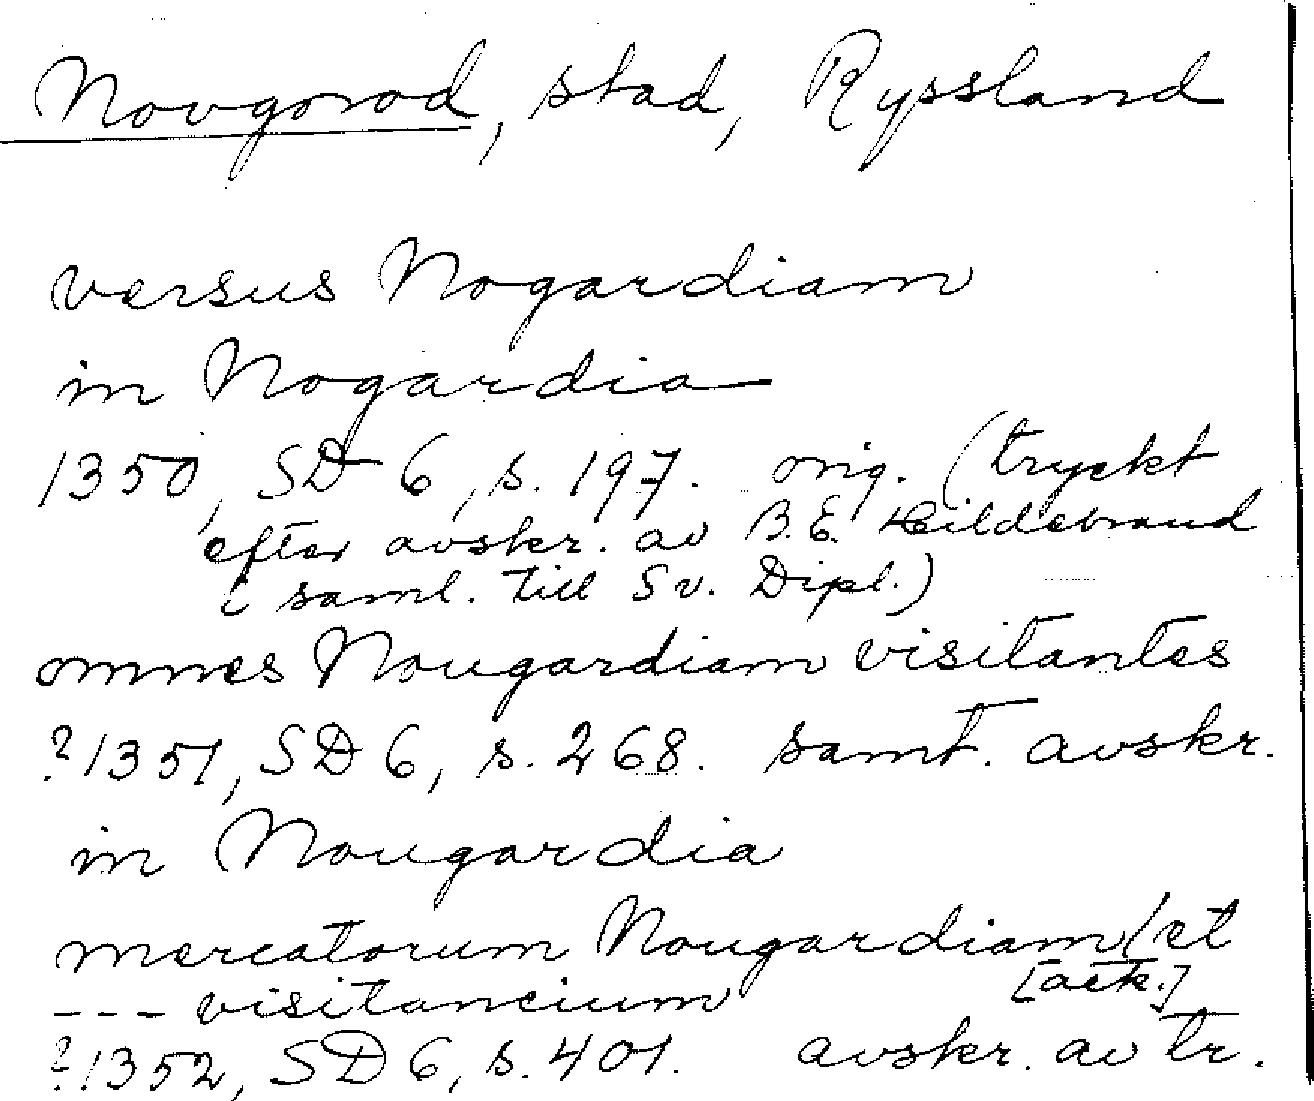 Novgorod, stad, Ryssland
versus Nogardiam
in Nogardia
1350, SD 6, s. 197. orig. (tryckt
efter avskr. av B.E. Hildebrand
i saml. till Sv. Dipl.)
omnes Nougardiam visitantes
?1351, SD 6, s. 268. samt. avskr.
in Nougardia
mercatorum Nougardiam (et
--- visitancium [ack.]
?1352, SD 6, s. 401. avskr. av tr.